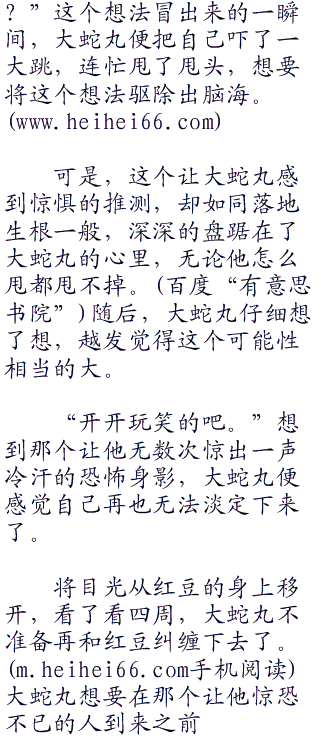 ？”这个想法冒出来的一瞬
间，大蛇丸便把自己吓了一
大跳，连忙甩了甩头，想要
将这个想法驱除出脑海。
(www.heihei66.com)
可是，这个让大蛇丸感
到惊惧的推测，却如同落地
生根一般，深深的盘踞在了
大蛇丸的心里，无论他怎么
甩都甩不掉。(百度“有意思
书院”)随后，大蛇丸仔细想
了想，越发觉得这个可能性
相当的大。
“开开玩笑的吧。”想
到那个让他无数次惊出一声
冷汗的恐怖身影，大蛇丸便
感觉自己再也无法淡定下来
了。
将目光从红豆的身上移
开，看了看四周，大蛇丸不
准备再和红豆纠缠下去了。
(m.heihei66.com手机阅读)
大蛇丸想要在那个让他惊恐
不已的人到来之前